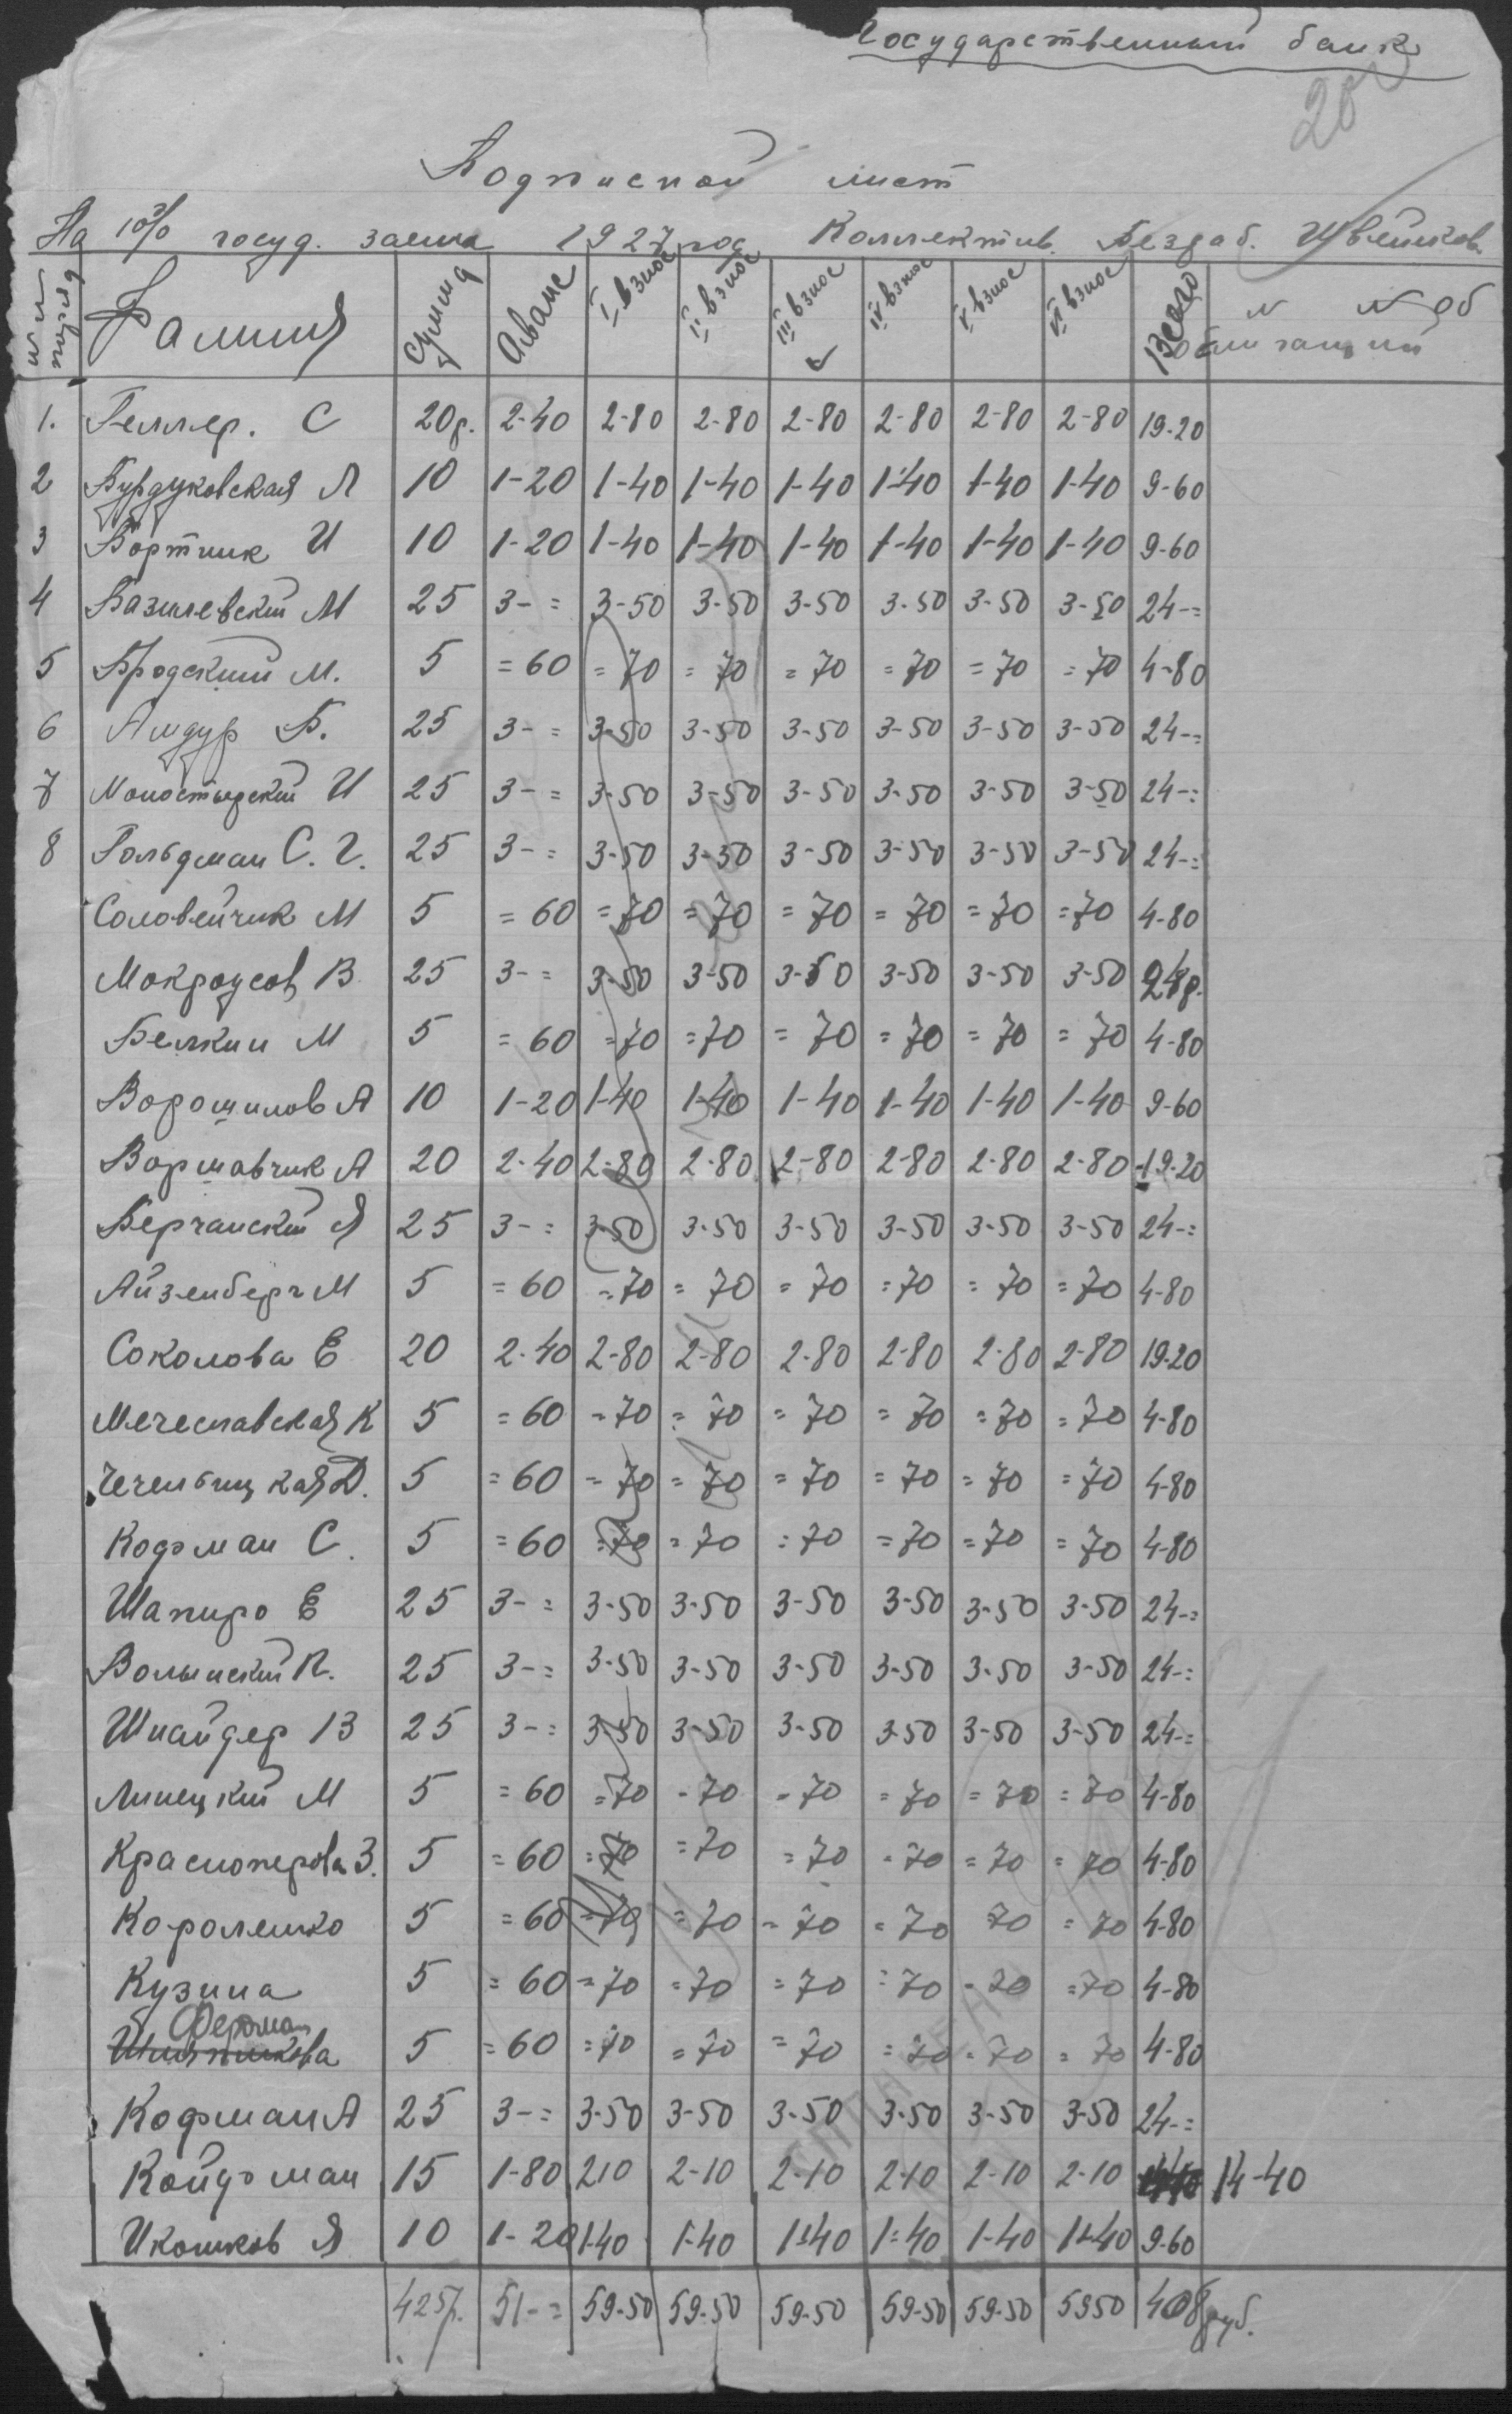 Государственный банк
20
Подписной лист
На 10% госуд. заема 1927 год Коллектив. Безраб. Швейников
Фамилия Сумма Аванс I взнос II взнос III взнос IV взнос V взнос VI взнос Всего № № об
облигаций
1. Геллер. С 20р. 2-40 2-80 2-80 2-80 2-80 2-80 2-80 19-20
2 Бурдуковская Л 10 1-20 1-40 1-40 1-40 1-40 1-40 1-40 9-60
3 Бортник И 10 1-20 1-40 1-40 1-40 1-40 1-40 1-40 9-60
4 Базилевский М 25 3-= 3-50 3-50 3-50 3-50 3-50 3-50 24-=
5 Бродский М. 5 =60 =70 =70 =70 =70 =70 =70 4-80
6 Амдур Б. 25 3-= 3-50 3-50 3-50 3-50 3-50 3-50 24-=
7 Моностырский И 25 3-= 3-50 3-50 3-50 3-50 3-50 3-50 24-=
8 Гольдман С. Г. 25 3-= 3-50 3-50 3-50 3-50 3-50 3-50 24-=
Соловейчик М 5 =60 =70 =70 =70 =70 =70 =70 4-80
Мокроусов В 25 3-= 3-50 3-50 3-50 3-50 3-50 3-50 24р.
Белкин М 5 =60 =70 =70 =70 =70 =70 =70 4-80
Ворошилов А 10 1-20 1-40 1-40 1-40 1-40 1-40 1-40 9-60
Воршавчик А 20 2-40 2-80 2-80 2-80 2-80 2-80 2-80 19-20
Берчанский Я 25 3-= 3-50 3-50 3-50 3-50 3-50 3-50 24-=
Айзенберг М 5 =60 =70 =70 =70 =70 =70 =70 4-80
Соколова Е 20 2-40 2-80 2-80 2-80 2-80 2-80 2-80 19-20
Мечеславская К 5 =60 =70 =70 =70 =70 =70 =70 4-80
Чечельницкая Д. 5 =60 =70 =70 =70 =70 =70 =70 4-80
Кофман С. 5 =60 =70 =70 =70 =70 =70 =70 4-80
Шапиро Е 25 3-= 3-50 3-50 3-50 3-50 3-50 3-50 24-=
Волынский П. 25 3-= 3-50 3-50 3-50 3-50 3-50 3-50 24-=
Шнайдер В 25 3-= 3-50 3-50 3-50 3-50 3-50 3-50 24-=
Линецкий М 5 =60 =70 =70 =70 =70 =70 =70 4-80
Красноперова З. 5 =60 =70 =70 =70 =70 =70 =70 4-80
Короленко 5 =60 =70 =70 =70 =70 70 =70 4-80
Кузина 5 =60 =70 =70 =70 =70 =70 =70 4-80
Ферман
5 =60 =70 =70 =70 =70 =70 =70 4-80
Кофман А 25 3-= 3-50 3-50 3-50 3-50 3-50 3-50 24-=
Койфман 15 1-80 2 10 2-10 2-10 2-10 2-10 2-10 14-40
Икошков Я 10 1-20 1-40 1-40 1-40 1-40 1-40 1-40 9-60
425р. 51-= 59-50 59-50 59-50 59-50 59-50 59 50 408 руб.